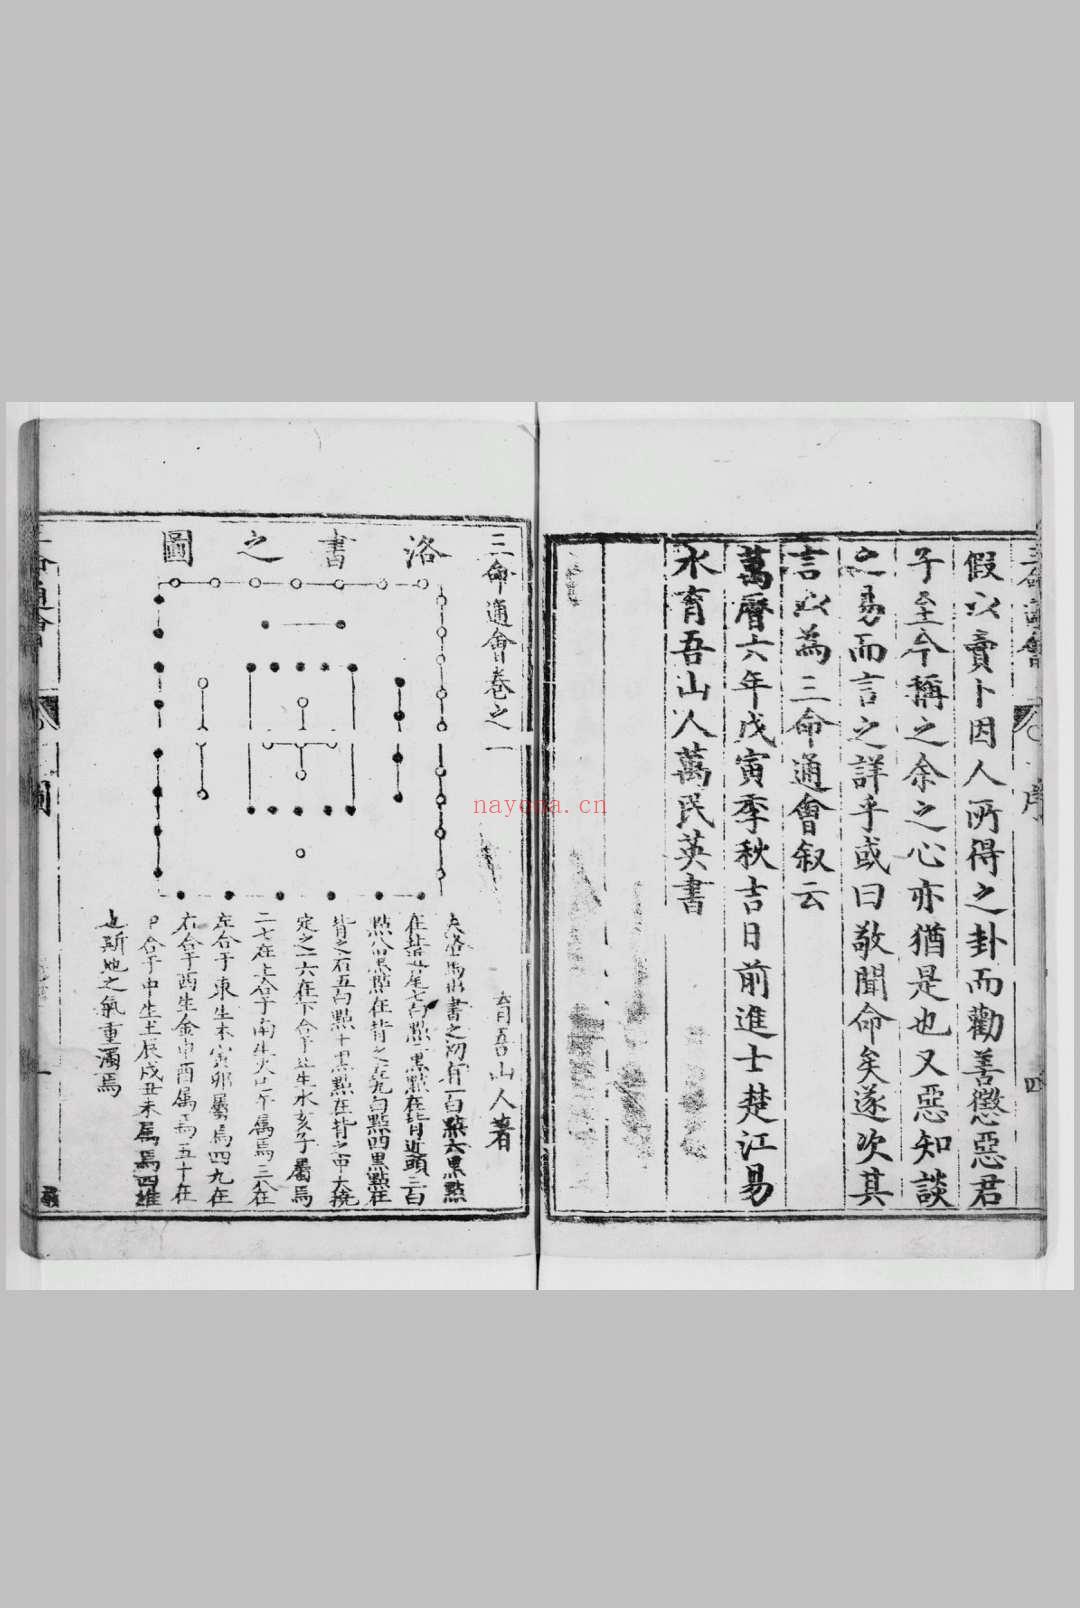 三命通會
序
四
假以賣卜因人所得之卦而勸善懲惡君
子至今稱之余之心亦猶是也又惡知談
之易而言之詳乎或曰敬聞命矣遂次其
言以為三命通會叙云
萬曆六年戊寅季秋吉日前進士楚江易
水育吾山人萬民英書
三命通會卷之一
育吾山人著
洛書之圖
夫洛馬出書之初有一白點六黑點
在背近尾七白點二黑點在背近頭三白
點八黑點在背之左九白點四黑點在
背之右五白點十黑點在背之中大撓
定之一六在下合于北生水亥子屬焉
二七在上合于南生火巳午属焉三八在
左合于東生木寅卯屬焉四九在
右合于西生金申酉属焉五十在
中合于中生土辰戌丑未属焉四維
也斯地之氣重濁焉
nayona.cn